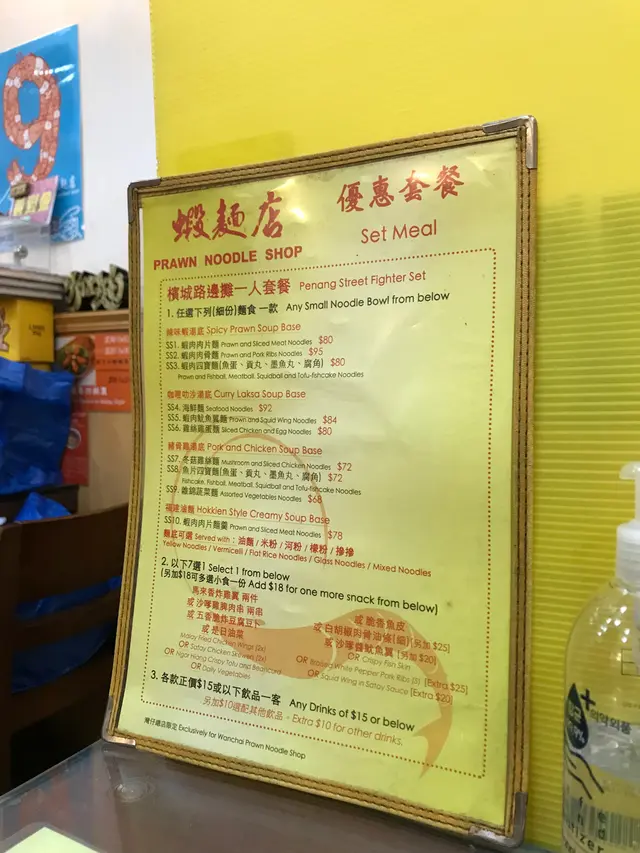 9
蝦麵店
優惠套餐
PRAWN NOODLE SHOP
Set Meal
檳城路邊攤一人套餐 Penang Street Fighter Set
1. 任選下列(細份)麵食 一款 Any Small Noodle Bowl from below
辣味蝦湯底 Spicy Prawn Soup Base
SS1. 蝦肉肉片麵 Prawn and Sliced Meat Noodles $80
SS2. 蝦肉肉骨麵 Prawn and Pork Ribs Noodles $95
SS3. 蝦肉四寶麵(魚蛋、貢丸、墨魚丸、腐角) $80
Prawn and Fishball, Meatball, Squidball and Tofu-fishcake Noodles
咖喱叻沙湯底 Curry Laksa Soup Base
SS4. 海鮮麵 Seafood Noodles $92
SS5. 蝦肉魷魚翼麵 Prawn and Squid Wing Noodles $84
SS6. 雞絲雞蛋麵 Sliced Chicken and Egg Noodles $80
豬骨雞湯底 Pork and Chicken Soup Base
SS7. 冬菇雞絲麵 Mushroom and Sliced Chicken Noodles $72
SS8. 魚片四寶麵(魚蛋、貢丸、墨魚丸、腐角) $72
Fishcake, Fishball, Meatball, Squidball and Tofu-fishcake Noodles
SS9. 雜錦蔬菜麵 Assorted Vegetables Noodles $68
福建滷麵 Hokkien Style Creamy Soup Base
SS10. 蝦肉肉片麵羹 Prawn and Sliced Meat Noodles $78
麵底可選 Served with : 油麵 / 米粉 / 河粉 / 檬粉 / 摻摻
Yellow Noodles / Vermicelli / Flat Rice Noodles / Glass Noodles / Mixed Noodles
2. 以下7選1 Select 1 from below
(另加$18可多選小食一份 Add $18 for one more snack from below)
馬來香炸雞翼 兩件
或 沙嗲雞腩肉串 兩串
或 五香脆炸豆腐豆卜
或 是日油菜
或 脆香魚皮
或 白胡椒肉骨油條(細)[另加 $25]
或 沙嗲醬魷魚翼 [另加 $20]
Malay Fried Chicken Wings (2x)
OR Satay Chicken Skewers (2x)
OR Ngar Hiang Crispy Tofu and Beancurd
OR Daily Vegetables
OR Crispy Fish Skin
OR Braised White Pepper Pork Ribs (S) [Extra $25]
OR Squid Wing in Satay Sauce [Extra $20]
3. 各款正價$15或以下飲品一客 Any Drinks of $15 or below
另加$10選配其他飲品。Extra $10 for other drinks.
灣仔總店限定 Exclusively for Wanchai Prawn Noodle Shop